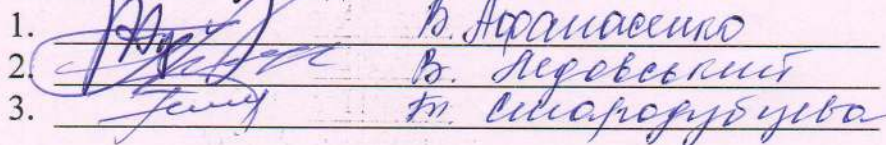 1. В. Афанасенко
2. В. Ледовський
3. Т. Стародубцева